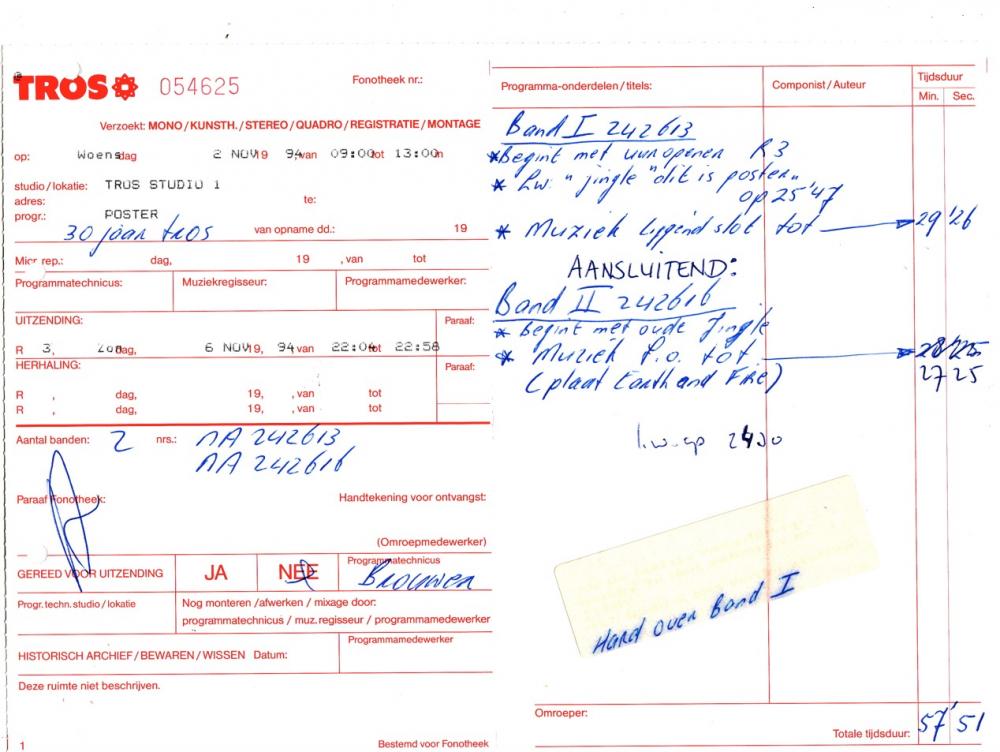 TROS 054625 Fonotheek nr.:
Verzoekt: MONO / KUNSTH. / STEREO / QUADRO / REGISTRATIE / MONTAGE
op: Woensdag 2 NOV 19 94, van 09:00 tot 13:00
studio / locatie: TROS STUDIO 1
adres: te:
progr.: POSTER
30 jaar TROS van opname dd.: 19
Micr rep.: dag, 19 , van tot
Programmatechnicus: Muziekregisseur: Programmamedewerker:
UITZENDING: Paraaf:
R 3, Zondag, 6 NOV 19, 94 van 22:04 tot 22:58
HERHALING: Paraaf:
R , dag, 19, , van tot
R , dag, 19, , van tot
Aantal banden: 2 nrs.: MA 242613
MA 242616
Paraaf Fonotheek: Handtekening voor ontvangst:
(Omroepmedewerker)
GEREED VOOR UITZENDING JA NEE Programmatechnicus
Brouwer
Progr. techn. studio / locatie Nog monteren / afwerken / mixage door:
programmatechnicus / muz. regisseur / programmamedewerker
HISTORISCH ARCHIEF / BEWAREN / WISSEN Datum: Programmamedewerker
Deze ruimte niet beschrijven.
1 Bestemd voor Fonotheek
Programma-onderdelen / titels: Componist / Auteur Tijdsduur
Min. Sec.
Band I 242613
* Begint met uuropener R3
* L.w. "jingle "dit is poster"
op 25'47
* Muziek liggend slot tot 29'26
AANSLUITEND:
Band II 242616
* Begint met oude Jingle
* Muziek f.o. tot 28'25
(plaat Earth and Fire) 27 25
l.w. op 2430
Hard over Band I
Omroeper:
Totale tijdsduur: 57'51